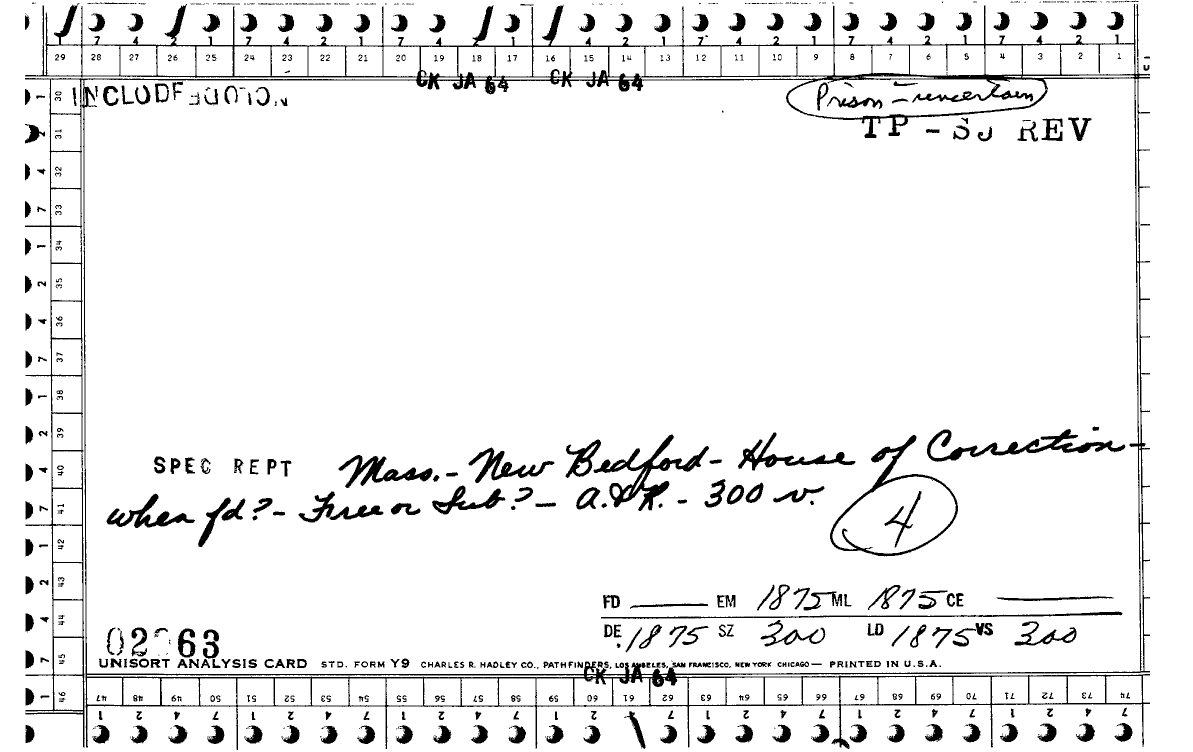 7 4 2 1 7 4 2 1 7 4 2 1 7 4 2 1 7 4 2 1 7 4 2 1 7 4 2 1
29 28 27 26 25 24 23 22 21 20 19 18 17 16 15 14 13 12 11 10 9 8 7 6 5 4 3 2 1
CK JA 64 CK JA 64
INCLUDE
Prison - uncertain
TP - SJ REV
1 30
2 31
4 32
7 33
1 34
2 35
4 36
7 37
1 38
2 39
4 40
7 41
1 42
2 43
4 44
7 45
1 46
SPEC REPT Mass. - New Bedford - House of Correction -
when fd? - Free or Sub? - A. & R. - 300 v.
4
FD EM 1875 ML 1875 CE
DE .1875 SZ 300 LD 1875 VS 300
UNISORT ANALYSIS CARD STD. FORM Y9 CHARLES R. HADLEY CO., PATHFINDERS, LOS ANGELES, SAN FRANCISCO, NEW YORK CHICAGO — PRINTED IN U.S.A.
CK JA 64
47 48 49 50 51 52 53 54 55 56 57 58 59 60 61 62 63 64 65 66 67 68 69 70 71 72 73 74
1 2 4 7 1 2 4 7 1 2 4 7 1 2 4 7 1 2 4 7 1 2 4 7 1 2 4 7